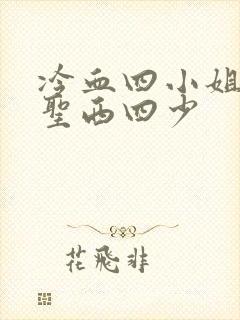 冷血四小姐
聖西四少
花飛非